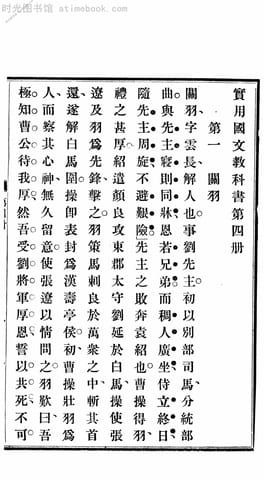 时光图书馆 - atimebook.com
實用國文教科書第四册
第一 關羽
關羽、字雲長、解人也。事劉先主、羽以別部司馬、分統部
曲。與先主寢則同牀、恩若兄弟。而稠人廣坐、侍立終日、
隨先主周旋、不避艱險。先主之奔袁紹也、曹操得羽、
禮之甚厚。紹遣顏良攻東郡太守劉延於白馬、操使張
遼及羽先鋒擊之。羽策馬刺良於萬衆之中、斬其首
還、遂解白馬圍。操卽表封漢壽亭侯。初曹操壯羽爲
人、而察其心神無久留意、使張遼以情問之。羽歎曰、吾
極知曹公待我厚、然吾受劉將軍厚恩、誓以共死、不可